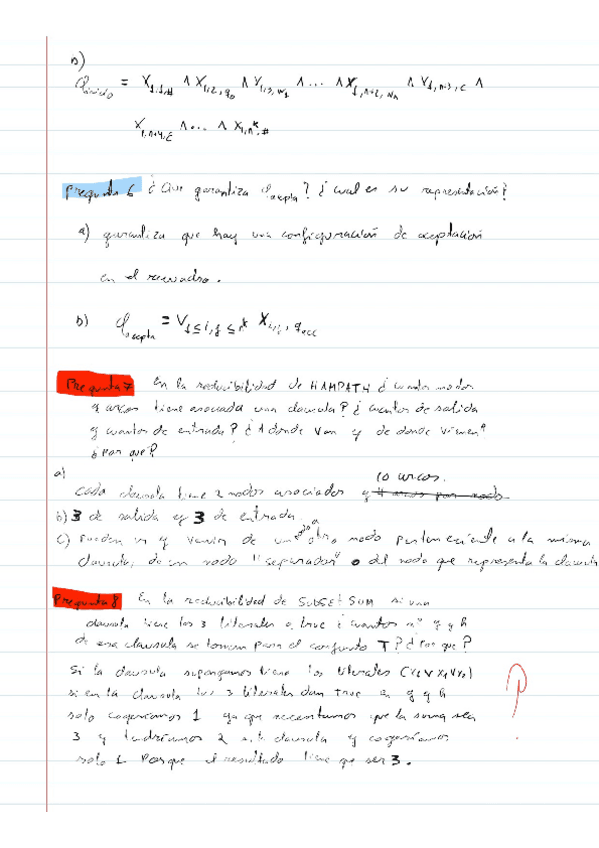 b)
φ_inicio = X_1,1,# ∧ X_1,2,q0 ∧ X_1,3,w1 ∧ ... ∧ X_1,n+2,wn ∧ X_1,n+3,ε ∧
X_1,n+4,ε ∧ ... ∧ X_1,n^k,#
Pregunta 6 ¿Que garantiza φ_acepta? ¿cual es su representación?
a) garantiza que hay una configuración de aceptación
en el recuadro.
b) φ_acepta = V_1≤i,j≤n^k X_i,j,q_acc
Pregunta 7 En la reducibilidad de HAMPATH ¿cuantos nodos
y arcos tiene asociada una clausula? ¿cuantos de salida
y cuantos de entrada? ¿A donde van y de donde vienen?
¿Por que?
a)
10 arcos.
cada clausula tiene 2 nodos asociados y 4 arcos por nodo
b) 3 de salida y 3 de entrada
c) Pueden ir y venir de un nodo a otro nodo perteneciente a la misma
clausula, de un nodo "separador" o del nodo que representa la clausula
Pregunta 8 En la reducibilidad de SUBSET SUM si una
clausula tiene los 3 literales a true ¿cuantos n° g y h
de esa clausula se toman para el conjunto T? ¿Por que?
Si la clausula supongamos tiene los literales
si en la clausula los 3 literales dan true en g y h
solo cogeriamos 1 ya que necesitamos que la suma sea
3 y tendriamos 2 clausula y cogeriamos
solo 1. Porque el resultado tiene que ser 3.